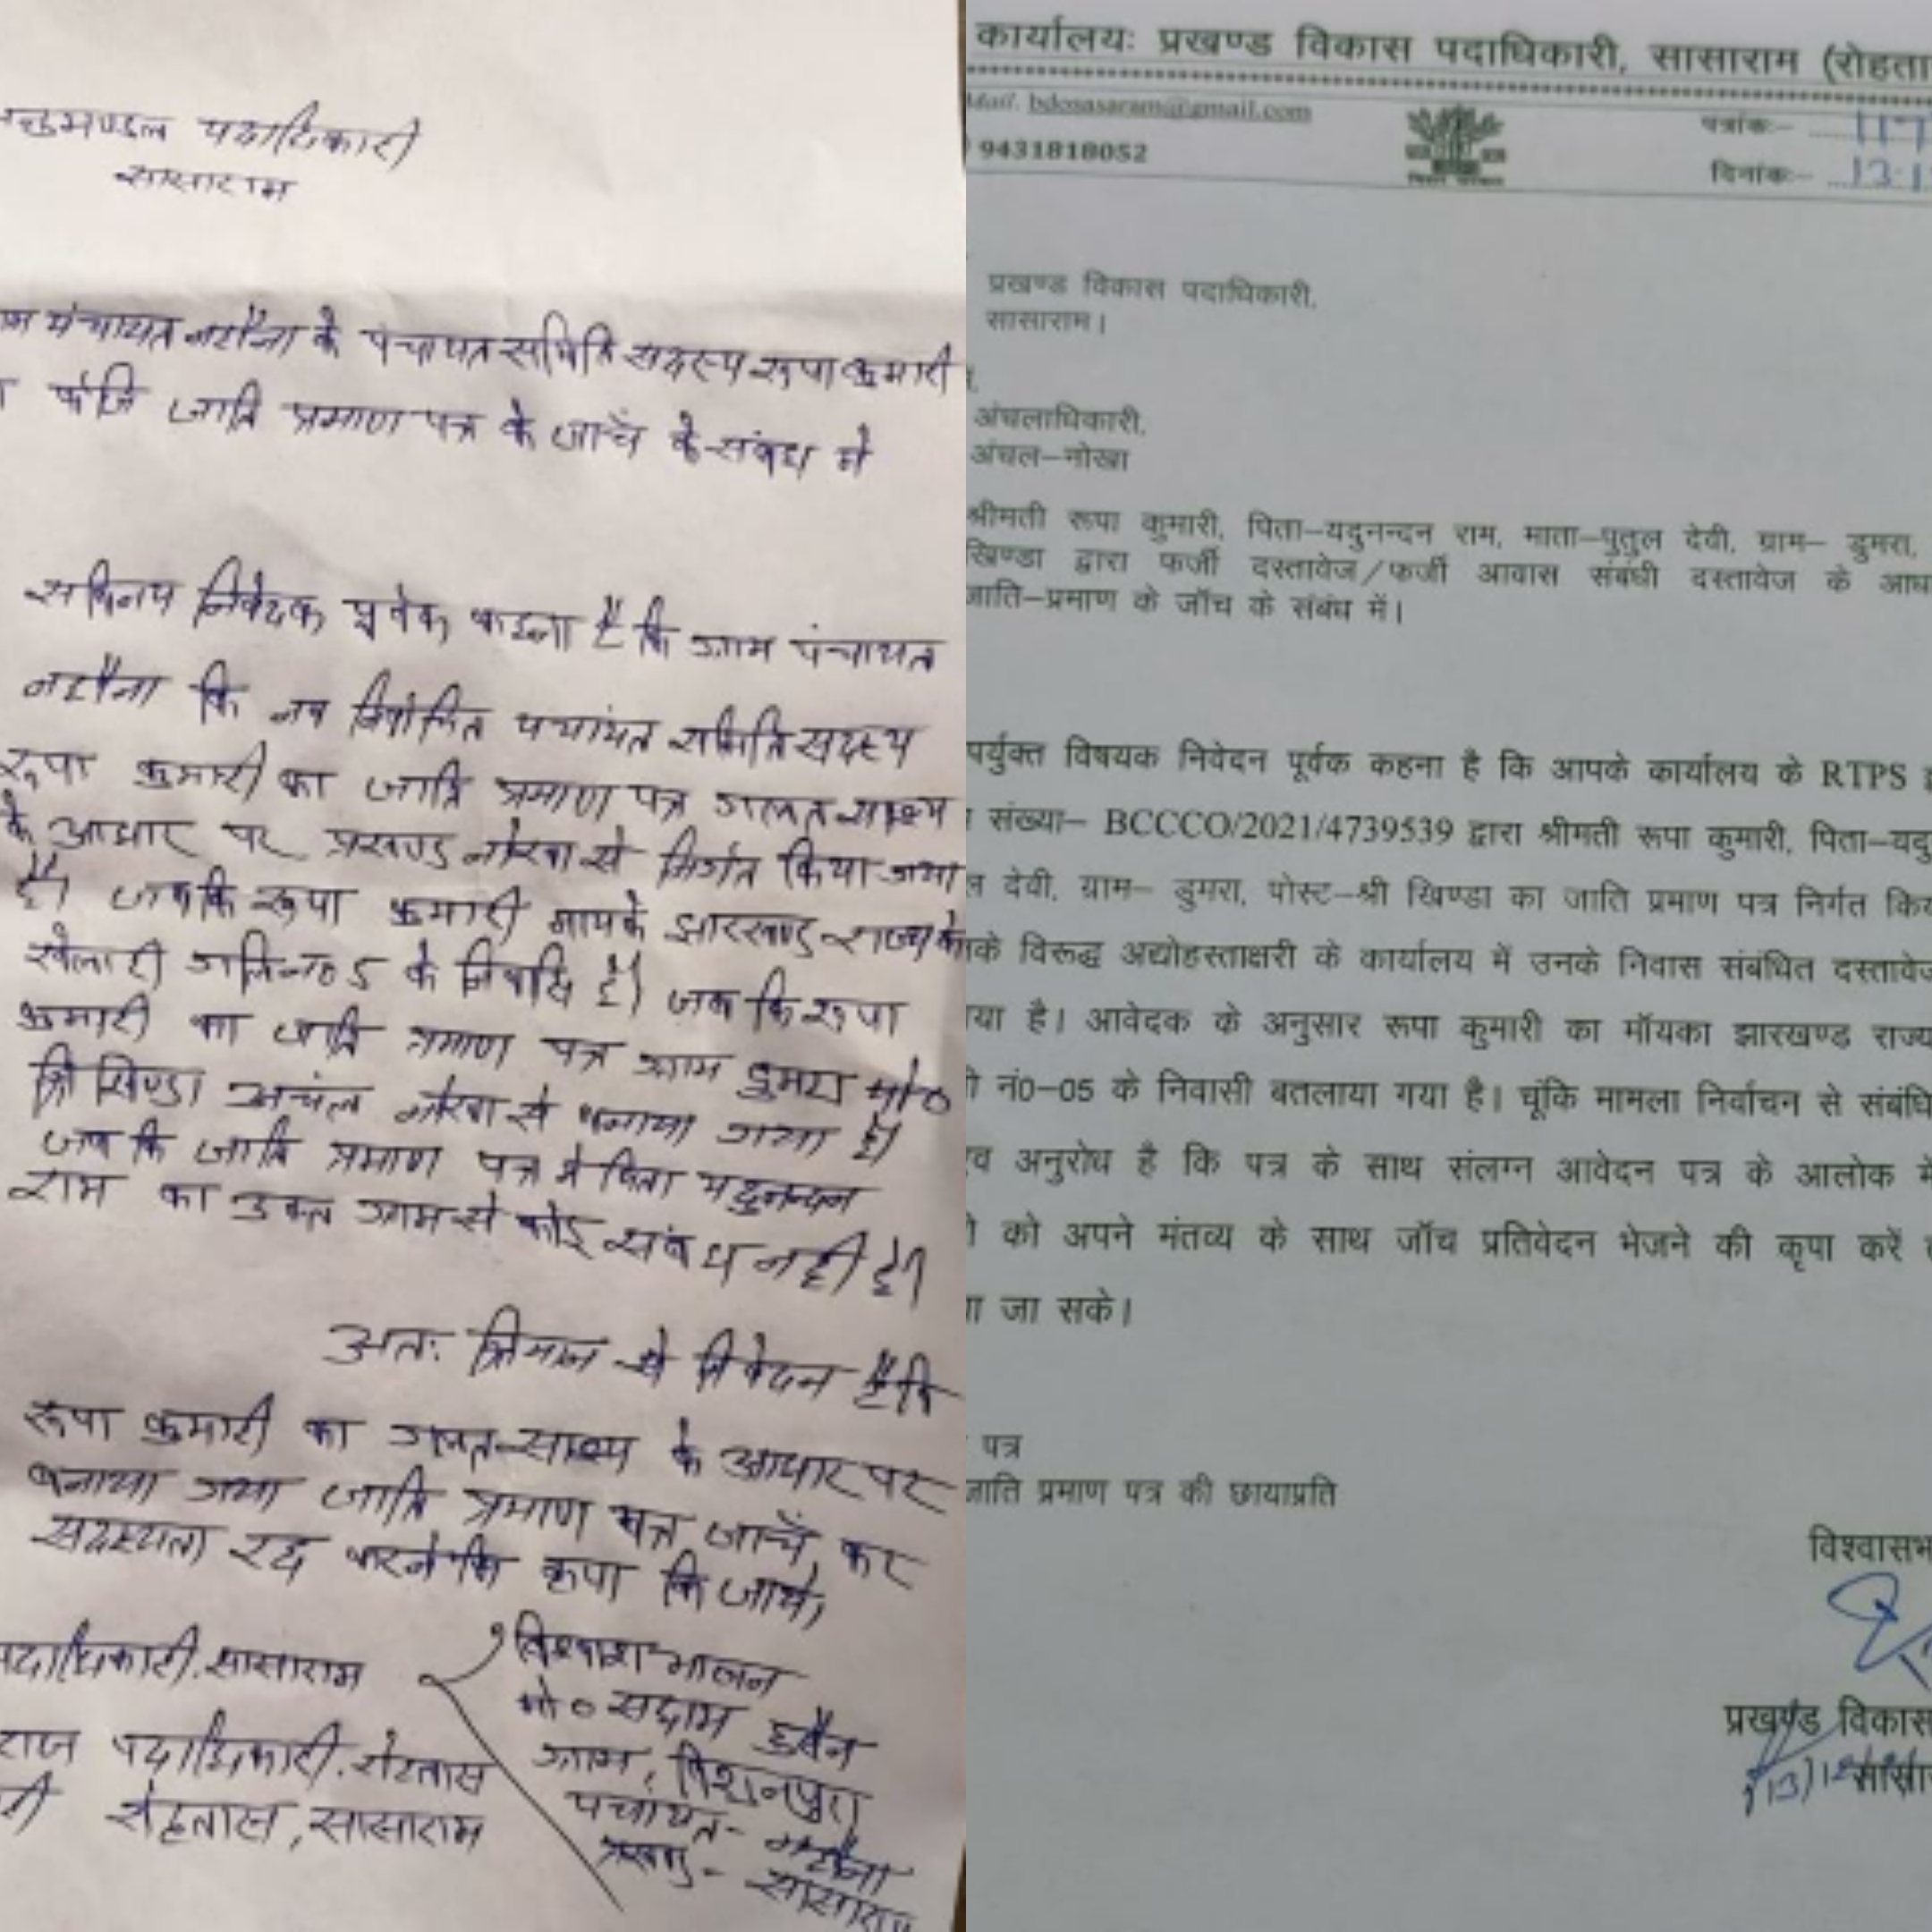 पदाधिकारी
सासाराम
पंचायत नहौना के पंचायत समिति सदस्य रूपा कुमारी
फर्जि जाति प्रमाण पत्र के जाचँ के संबध मे
सविनय निवेदक पुर्वक कहना है कि ग्राम पंचायत
नहौना कि नव निर्वाचित पचांयत समिति सदस्य
रूपा कुमारी का जाति प्रमाण पत्र गलत साक्ष्य
के आधार पर प्रखण्ड नोखा से निर्गत किया गया
है। जबकि रूपा कुमारी मायके झारखण्ड राज्य के
खेलारी गलि न0 5 के निवासि है। जब कि रूपा
कुमारी का जाति प्रमाण पत्र ग्राम डुमरा पो0
श्रि खिण्डा अचंल नोखा से बनाया गया है।
जब कि जाति प्रमाण पत्र मे पिता यदुनन्दन
राम का उक्त ग्राम से कोई संबध नही है।
अतः श्रिमान से निवेदन है कि
रूपा कुमारी का गलत साक्ष्य के आधार पर
बनाया गया जाति प्रमाण पत्र जाचँ कर
सदस्यता रद करने कि कृपा कि जाये।
पदाधिकारी. सासाराम
पदाधिकारी. रोहतास
रोहतास, सासाराम
विश्वाश भाजन
मो0 सद्दाम हुसैन
ग्राम, विशनपुरा
पचांयत- नहौना
प्रखण्ड- सासाराम
कार्यालयः प्रखण्ड विकास पदाधिकारी, सासाराम (रोहता
Mail. bdosasaram@gmail.com
9431818052
पत्रांकः- 117
दिनांकः- 13.1
प्रखण्ड विकास पदाधिकारी,
सासाराम।
अंचलाधिकारी,
अंचल-नोखा
श्रीमती रूपा कुमारी, पिता-यदुनन्दन राम, माता-पुतुल देवी, ग्राम- डुमरा,
खिण्डा द्वारा फर्जी दस्तावेज/फर्जी आवास संबंधी दस्तावेज के आध
जाति-प्रमाण के जॉच के संबंध में।
पर्युक्त विषयक निवेदन पूर्वक कहना है कि आपके कार्यालय के RTPS
संख्या- BCCCO/2021/4739539 द्वारा श्रीमती रूपा कुमारी, पिता-यदु
ल देवी, ग्राम- डुमरा, पोस्ट-श्री खिण्डा का जाति प्रमाण पत्र निर्गत किय
के विरूद्ध अद्योहस्ताक्षरी के कार्यालय में उनके निवास संबंधित दस्तावेज
या है। आवेदक के अनुसार रूपा कुमारी का मॉयका झारखण्ड राज्य
नं0-05 के निवासी बतलाया गया है। चूंकि मामला निर्वाचन से संबंधि
व अनुरोध है कि पत्र के साथ संलग्न आवेदन पत्र के आलोक में
को अपने मंतव्य के साथ जॉच प्रतिवेदन भेजने की कृपा करें
जा सके।
पत्र
जाति प्रमाण पत्र की छायाप्रति
विश्वासभ
प्रखण्ड विकास
सासा